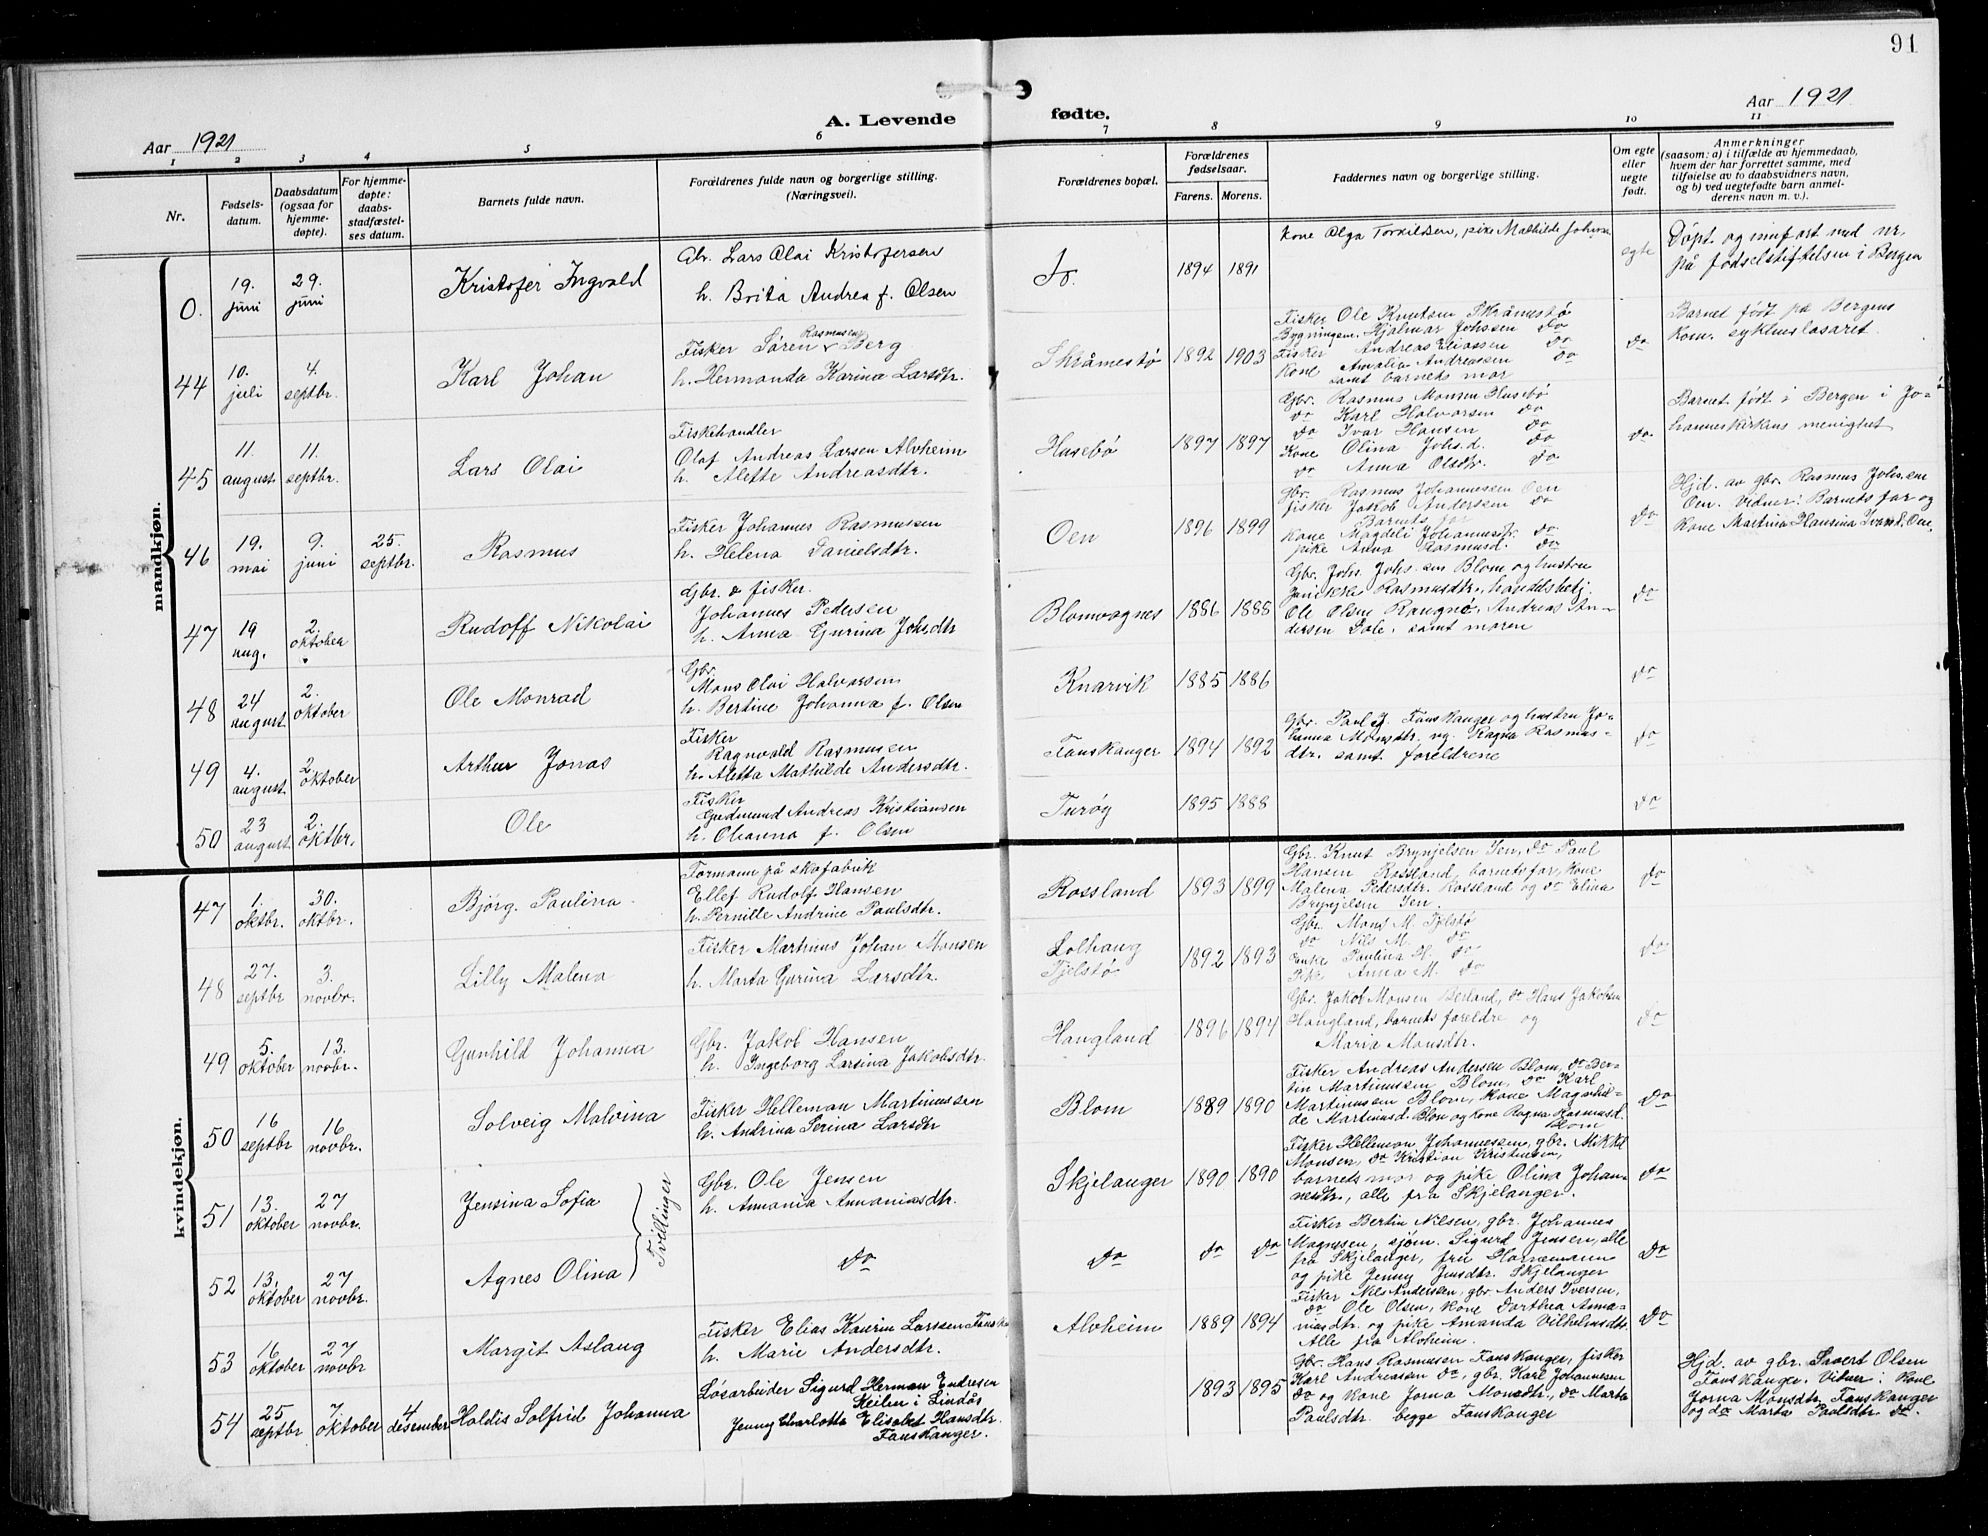 91
Aar 1921
A. Levende
fødte.
Aar 1921
1 2 3 4 5 6 7 8 9 10 11
Nr.
Fødsels-
datum.
Daabsdatum
(ogsaa for
hjemme-
døpte).
For hjemme-
døpte:
daabs-
stadfæstel-
ses datum.
Barnets fulde navn.
Forældrenes fulde navn og borgerlige stilling.
(Næringsvei).
Forældrenes bopæl.
Forældrenes
fødselsaar.
Farens. Morens.
Faddernes navn og borgerlige stilling.
Om egte
eller
uegte
født.
Anmerkninger
(saasom: a) i tilfælde av hjemmedaab,
hvem der har forrettet samme, med
tilføielse av to daabsvidners navn,
og b) ved uegtefødte barn anmel-
derens navn m. v.).
mandkjøn.
0. 19. juni 29. juni Kristofer Ingvald
Lars Olai Kristofersen
h. Brita Andrea f. Olsen
1894 1891
Kone Olga Torkildsen, pike Mathilde
egte
Døpt og innfört med nr.
på födselstiftelsen i Bergen
44 10. juli 4. septbr. Karl Johan
Rasmusen
Fisker Søren Berg
h. Hermanda Karina Larsdtr.
Skråmestø 1892 1903
Fisker Ole Knutsen Skråmestø
Bygningsm. Hjalmar Johssen do
Fisker Andreas Eliassen do
Kone Amalia Andreassen do
samt barnets mor
do
Barnet født på Bergens
Kom. sykehus lasaret.
45 11. august 11. septbr. Lars Olai
Fiskehandler
Olaf Andreas Larsen Alvheim
h. Alette Andreasdtr.
Husebø 1897 1897
Gbr. Rasmus Monsen Husebö
do Karl Halvorsen do
do Ivar Hansen do
Kone Olina Johs.d. do
do Anna Olsdtr. do
do
Barnet født i Bergen i Jo-
hanneskirkens menighet
46 19. mai 9. juni 25. septbr. Rasmus
Fisker Johannes Rasmusen
h. Helena Danielsdtr.
Oen 1896 1899
Gbr. Rasmus Johannessen Oen
fisker Jakob Andersen do
Barnets far
Kone Magdeli Johannesdtr. do
pike Anna Rasmusd. do
do
Hjd. av gbr. Rasmus Johs.en
Oen. Vidner: Barnets far og
Kone Martina Hansina Ivarsd. Oen.
47 19 aug. 2. oktober Rudolf Nikolai
Gbr. & fisker.
Johannes Pedersen
h. Anna Gurina Johsdtr
Blomvågnes 1886 1888
Gbr. Johs. Johs.en Blom og hustru
Janikke Rasmusdtr., handelsbetj.
Ole Olsen Rangnö, Andreas An-
dersen Dale, samt moren
do
48 24 august. 2. oktober Ole Monrad
Gbr.
Mons Olai Halvorsen
h. Bertine Johanna f. Olsen
Knarvik 1885 1886
do
49 4. august. 2 oktober Arthur Jonas
Fisker
Ragnvald Rasmusen
h. Aletta Mathilde Andersdtr.
Fanskanger 1894 1892
Gbr. Paul J. Fanskanger og hustru Jo-
hanna Monsdtr. og Ragna Rasmus-
dtr. samt foreldrene
do
50 23 august. 2. oktbr. Ole
Fisker
Gudmund Andreas Kristiansen
h. Oleanna f. Olsen
Turøy 1895 1888
do
kvindekjøn.
47 1. oktbr. 30. oktbr. Bjørg Paulina
Formann på skofabrik
Ellef Rudolf Hansen
h. Pernille Andrine Paulsdtr.
Rossland 1893 1899
Gbr. Knut Brynjelsen Sen, do Paul
Hansen Rossland, barnets far, kone
Malena Pedersdtr. Rossland og do Elina
Brynjelsen Sen.
do
48 27. septbr 3. novbr. Lilly Malena
Fisker Martinus Johan Monsen
h. Marta Gurina Larsdtr.
Solhaug
Tjelstø 1892 1893
Gbr. Mons M. Tjelstø
do Nils M. do
Enke Paulina H. do
Pike Anna M. do
do
49 5. oktober 13. novbr. Gunhild Johanna
Gbr. Jakob Hansen
h. Ingeborg Larsina Jakobsdtr.
Haugland 1896 1894
Gbr. Jakob Monsen Berland, do Hans Jakobsen
Haugland, barnets foreldre og
Maria Monsdtr.
do
50 16 septbr 16 novbr. Solveig Malvina
Fisker Helleman Martinussen
h. Andrina Serina Larsdtr
Blom 1889 1890
Fisker Andreas Andersen Blom, do Ber-
tin Martinussen Blom, do Karl
Martinussen Blom, kone Magnhil-
de Martinusd. Blom og kone Ragna Rasmusd.
Blom
do
51 13. oktober 27 novbr. Jensina Sofia
Tvillinger
Gbr. Ole Jensen
h. Amania Ananiasdtr.
Skjelanger 1890 1890
Fisker Helleman Johannessen, gbr. Mikkel
Monsen, do Kristian Kristensen,
barnets mor og pike Olina Johan-
nesdtr., alle fra Skjelanger.
do
52 13. oktober 27 novbr. Agnes Olina
do do do do
Fisker Bertin Nilsen, gbr. Johannes
Magnesen, sjøm. Sigurd Jensen, alle
fra Skjelanger, fru Hannemann
og pike Jenny Jensdtr. Skjelanger
do
53 16 oktober 27 novbr Margit Aslaug
Fisker Elias Kaurin Larssen
h. Marie Andersdtr.
Alvheim 1889 1894
Fisker Nils Anderssen, gbr Anders Iversen,
do Ole Olsen, kone Dorthea Anna-
niasdtr. og pike Amanda Vilhelmsdtr.
Alle fra Alvheim.
do
54 25 septbr 7. oktober 4 desember Haldis Solfrid Johanna
Løsarbeider Sigurd Herman Endresen
Keilen i Lindås
Jenny Charlotta Elisabet Hansdtr.
Fanskanger.
1893 1895
Gbr. Hans Rasmusen Fanskanger, fisker
Karl Andreassen do, gbr. Karl Johannesen
do og kone Jorna Monsdtr., do Marta
Paulsdtr. begge Fanskanger
Hjd. av gbr. Sivert Olsen
Fanskanger. Vitner: Kone
Jorna Monsdtr. Fanskanger
og do Marta Paulsdtr. do.